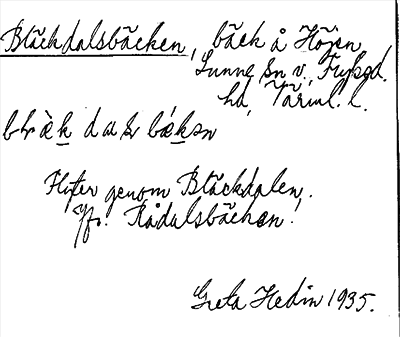 Bläckdalsbäcken, bäck å Höjen
Sunne sn v. Fryksd.
hd, Värml. l.
blæ̀k da&s bǽkən
Flyter genom Bläckdalen.
Jfr. Rådalsbäcken!
Greta Hedin 1935.